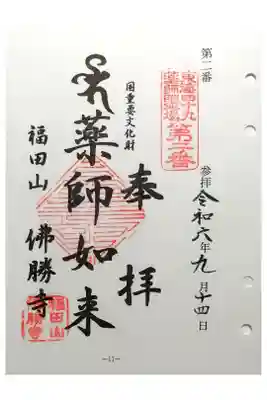 第二番
東海四十九
薬師霊場
第二番
参拝 令和六年九月十四日
奉拝
国重要文化財
薬師如来
福田山 佛勝寺
福田山